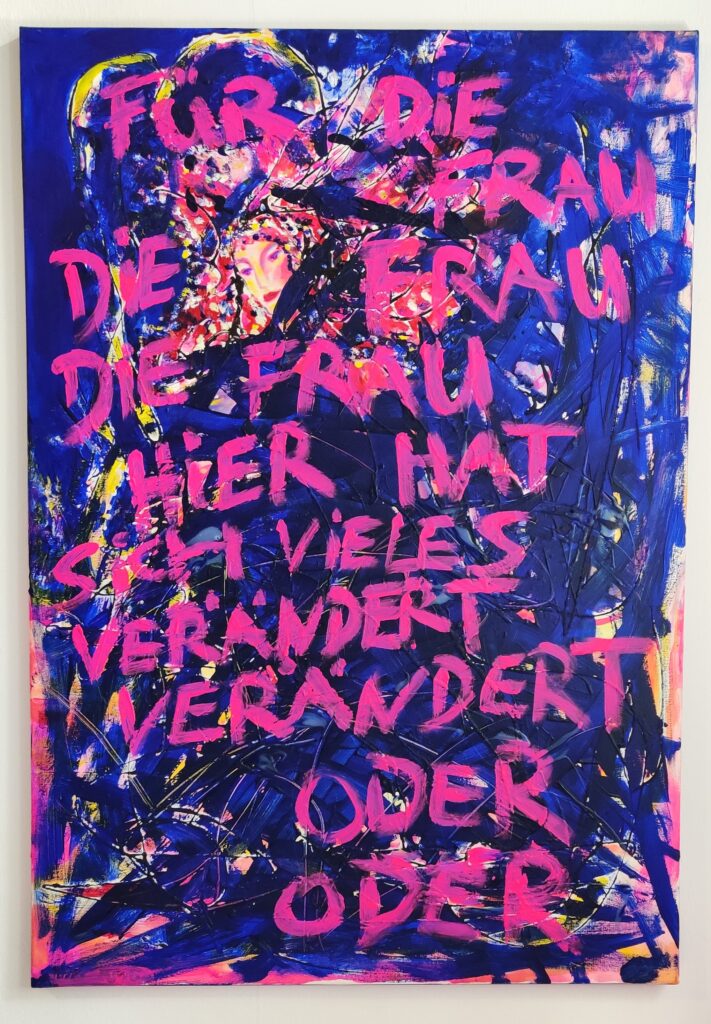 FÜR DiE
FRAU
DiE FRAU
DiE FRAU
HiER HAT
SiCH ViELES
VERÄNDERT
VERÄNDERT
ODER
ODER